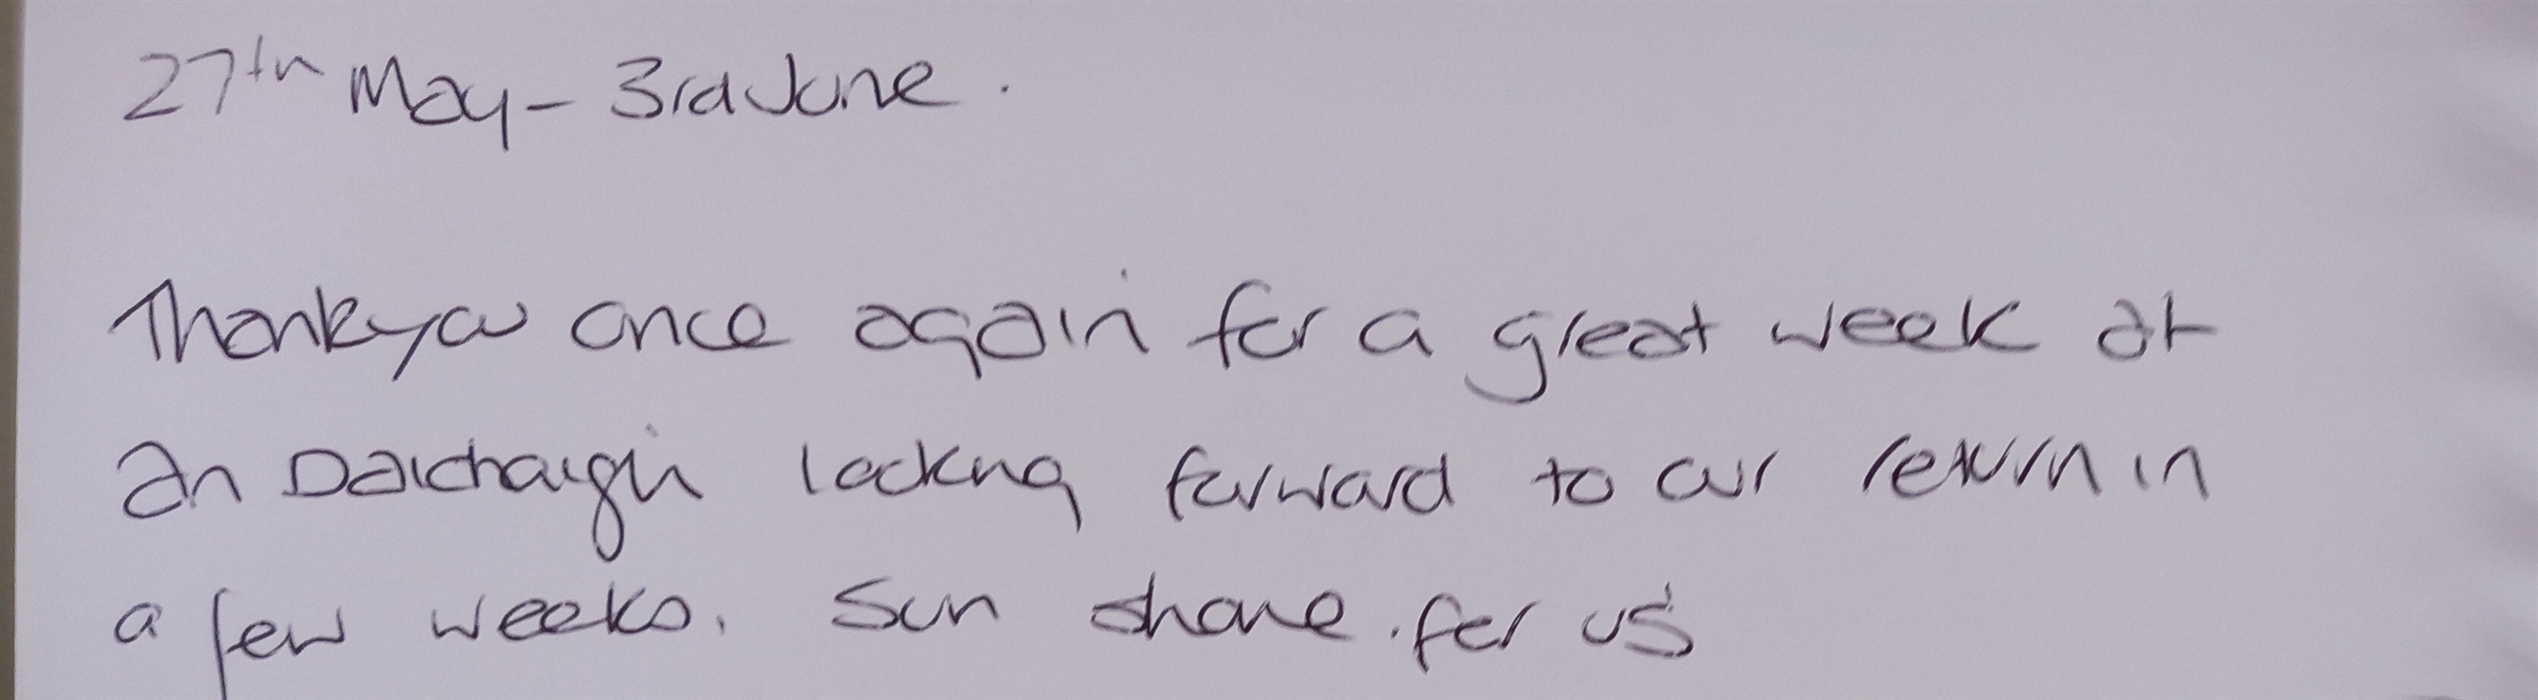 27th May - 3rd June.
Thankyou once again for a great week at
an Darchaigh looking forward to our return in
a few weeks. Sun shone for us